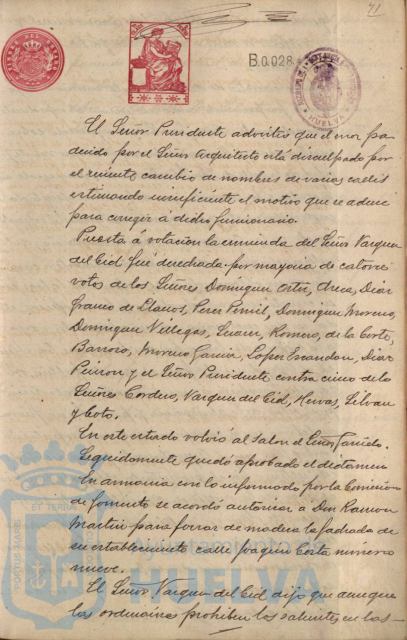 71
B.0.028.
HUELVA
El Señor Presidente advirtió que el error pa-
decido por el Señor Arquitecto está disculpado por
el reciente cambio de nombres de varias calles
estimando insuficiente el motivo que se aduce
para corregir á dicho funcionario.
Puesta á votación la enmienda del Señor Vazquez
del Cid fue desechada por mayoria de catorce
votos de los Señores Dominguez Ortiz, Oreca, Diaz
Franco de Llanos, Perez Pemil, Dominguez Moreno,
Dominguez Villegas, Suarez, Romero, de la Corte,
Barroso, Moreno Garcia, Lopez Escandon, Diaz
y el Señor Presidente contra cinco de los
Señores Cordero, Vazquez del Cid, Hervas, Silvan
y Coto.
En este estado volvió al salon el Señor Garrido.
Seguidamente quedó aprobado el dictamen
En armonia con lo informado por la Comision
de fomento se acordó autorizar a Don Ramon
Martin para forrar de madera la fachada de
su establecimiento calle Joaquin Costa número
nueve.
El Señor Vazquez del Cid dijo que aunque
las ordenanzas prohiben los salientes en las
ET TERRAE
PORTUS MARIS
Ayuntamiento de
HUELVA